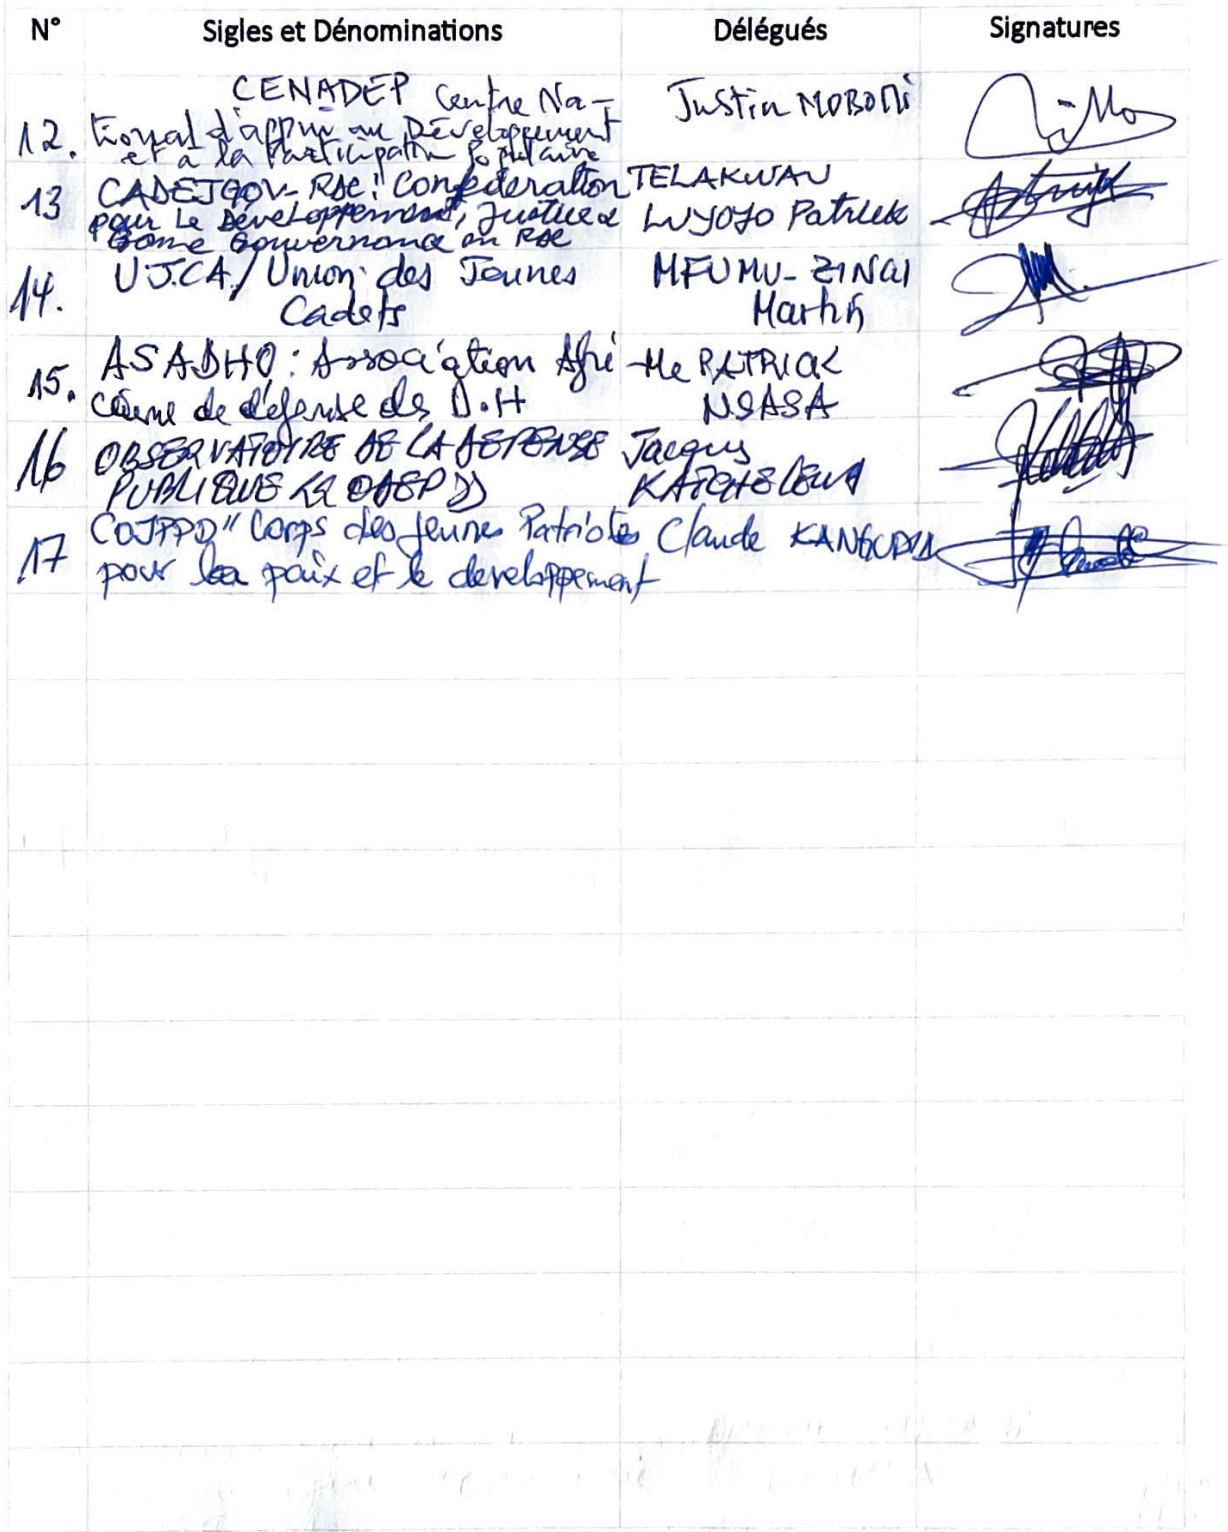 N° Sigles et Dénominations Délégués Signatures
CENADEP Centre Na-
12. tional d'appui au Développement
et à la Participation Populaire
Justin MOBOMI
13 CADEJGOV-RDC: Confédération
pour Le Développement, Justice &
Bonne Gouvernance en RDC
TELAKWAU
LUYOYO Patrick
14. U.J.CA./ Union des Jeunes
Cadets
MFUMU-ZINGI
Martin
15. ASADHO: Association Afri
caine de défense des D.H
Me PATRICK
NSASA
16 OBSERVATOIRE DE LA DEPENSE
PUBLIQUE << ODEP >>
Jacques
17 COJPPD" Corps des jeunes Patriotes
pour la paix et le developpement
Claude